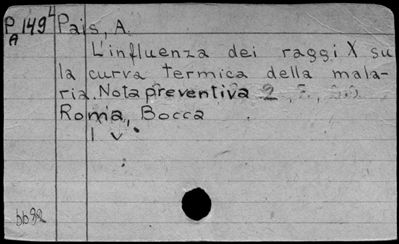 P 149⁴ Pais, A.
A
L'influenza dei raggi X su
la curva termica della mala-
ria. Nota preventiva 2
Roma, Bocca
1 v.